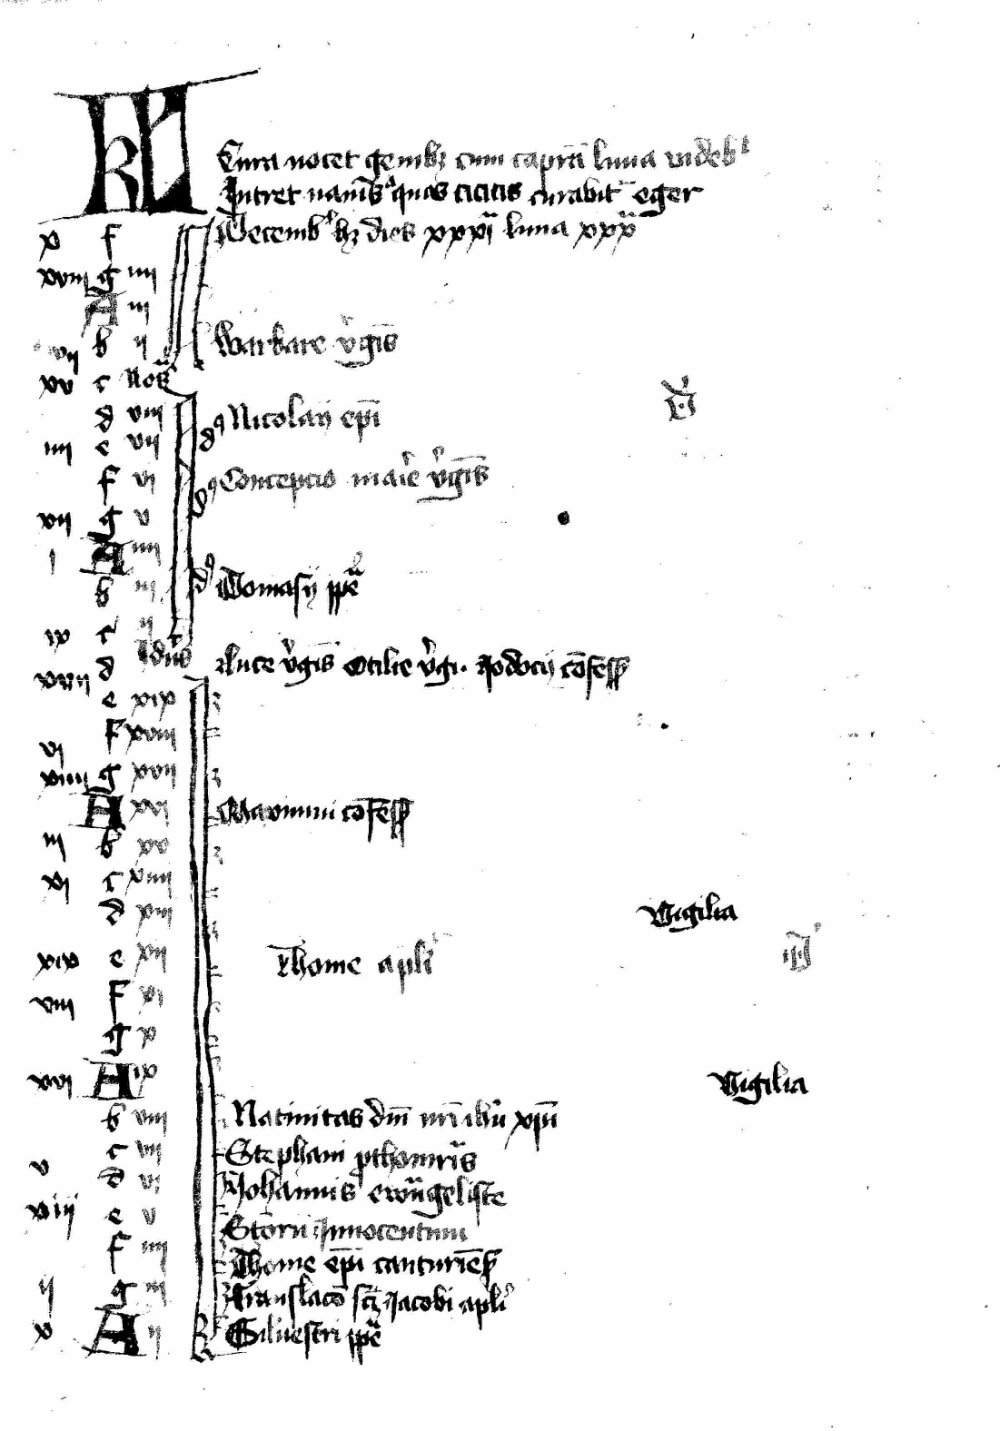 KL
Cura nocet genibus cum capram luna videbit
Intret navim quos cicitis curabit eger
Decemb hz dies xxxi luna xxx
x f
xviii g iiii
A iii
vii b ii Barbare vgis
xv c Nos
d viii
iiii e vii ds Nicolay epi
f vi ds Concepcio marie vgis
vii g v
i A iiii
b iii ds Damasy ppe
ix c ii
xvii d Idus Luce vgis Otilie vgi. Jodocij cofess
e xix
vi f xviii
xiiii g xvii
A xvi Maximini cofess
iii b xv
xi c xiiii
d xiii Vigilia
xix e xii Thome apli
viii f xi
g x
xvi A ix Vigilia
b viii Nativitas dni nri ihu xpi
c vii Stephani pthomris
v d vi Johannis ewngeliste
xiii e v Storu Innocentum
f iiii Thome epi canturies
ii g iii Translaco sci Jacobi apli
x A ii Silvestri ppe